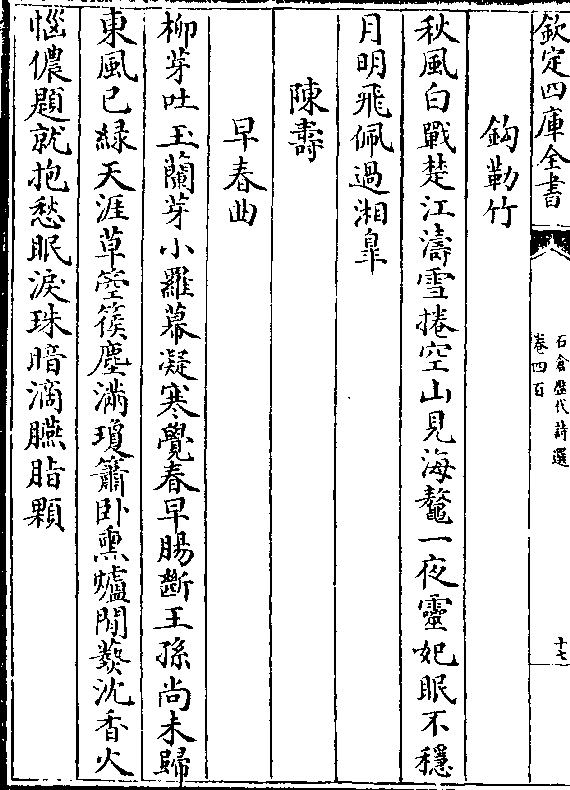 欽定四庫全書
石倉歷代詩選
卷四百
十七
鉤勒竹
秋風白戰楚江濤雪捲空山見海鼇一夜靈妃眠不穩
月明飛佩過湘臯
陳壽
早春曲
柳芽吐玉蘭芽小羅幕凝寒覺春早腸斷王孫尚未歸
東風已緑天涯草箜篌塵滿瓊簫卧熏爐閒爇沈香火
惱儂題就抱愁眠淚珠暗滴臙脂顆